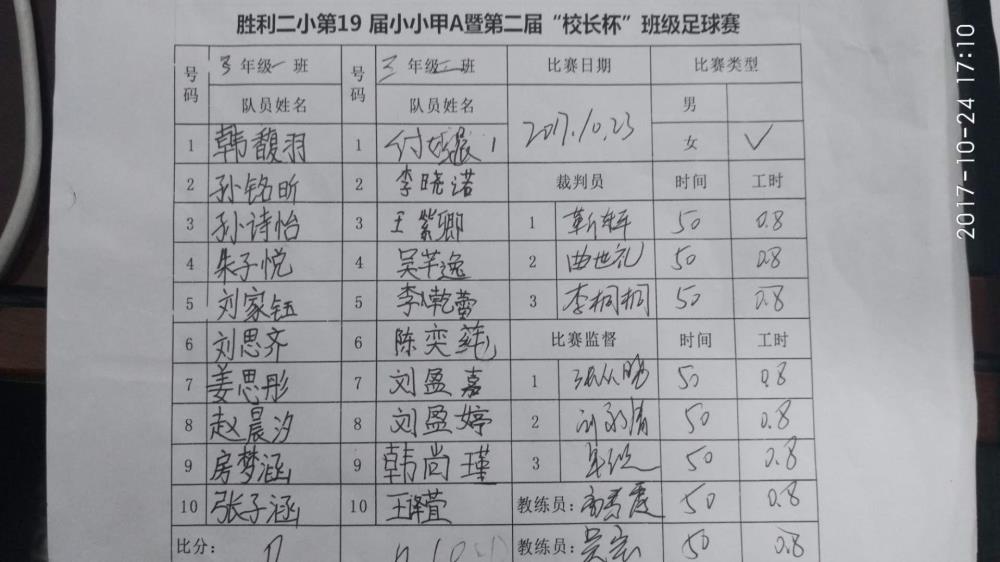 胜利二小第19 届小小甲A暨第二届“校长杯”班级足球赛
号码 3 年级一班 号码 三 年级二班 比赛日期 比赛类型
队员姓名 队员姓名 2017.10.23 男
1 韩馥羽 1 女 ✓
2 孙铭昕 2 李晓诺 裁判员 时间 工时
3 孙诗怡 3 王紫卿 1 50 0.8
4 朱子悦 4 吴芊逸 2 曲世礼 50 0.8
5 刘家钰 5 李乾蕾 3 李桐桐 50 0.8
6 刘思齐 6 陈奕 比赛监督 时间 工时
7 姜思彤 7 刘盈嘉 1 50 0.8
8 赵晨汐 8 刘盈婷 2 50 0.8
9 房梦涵 9 韩尚瑾 3 50 0.8
10 张子涵 10 王译萱 教练员: 50 0.8
比分: 教练员: 吴宏 50 0.8
2017-10-24 17:10